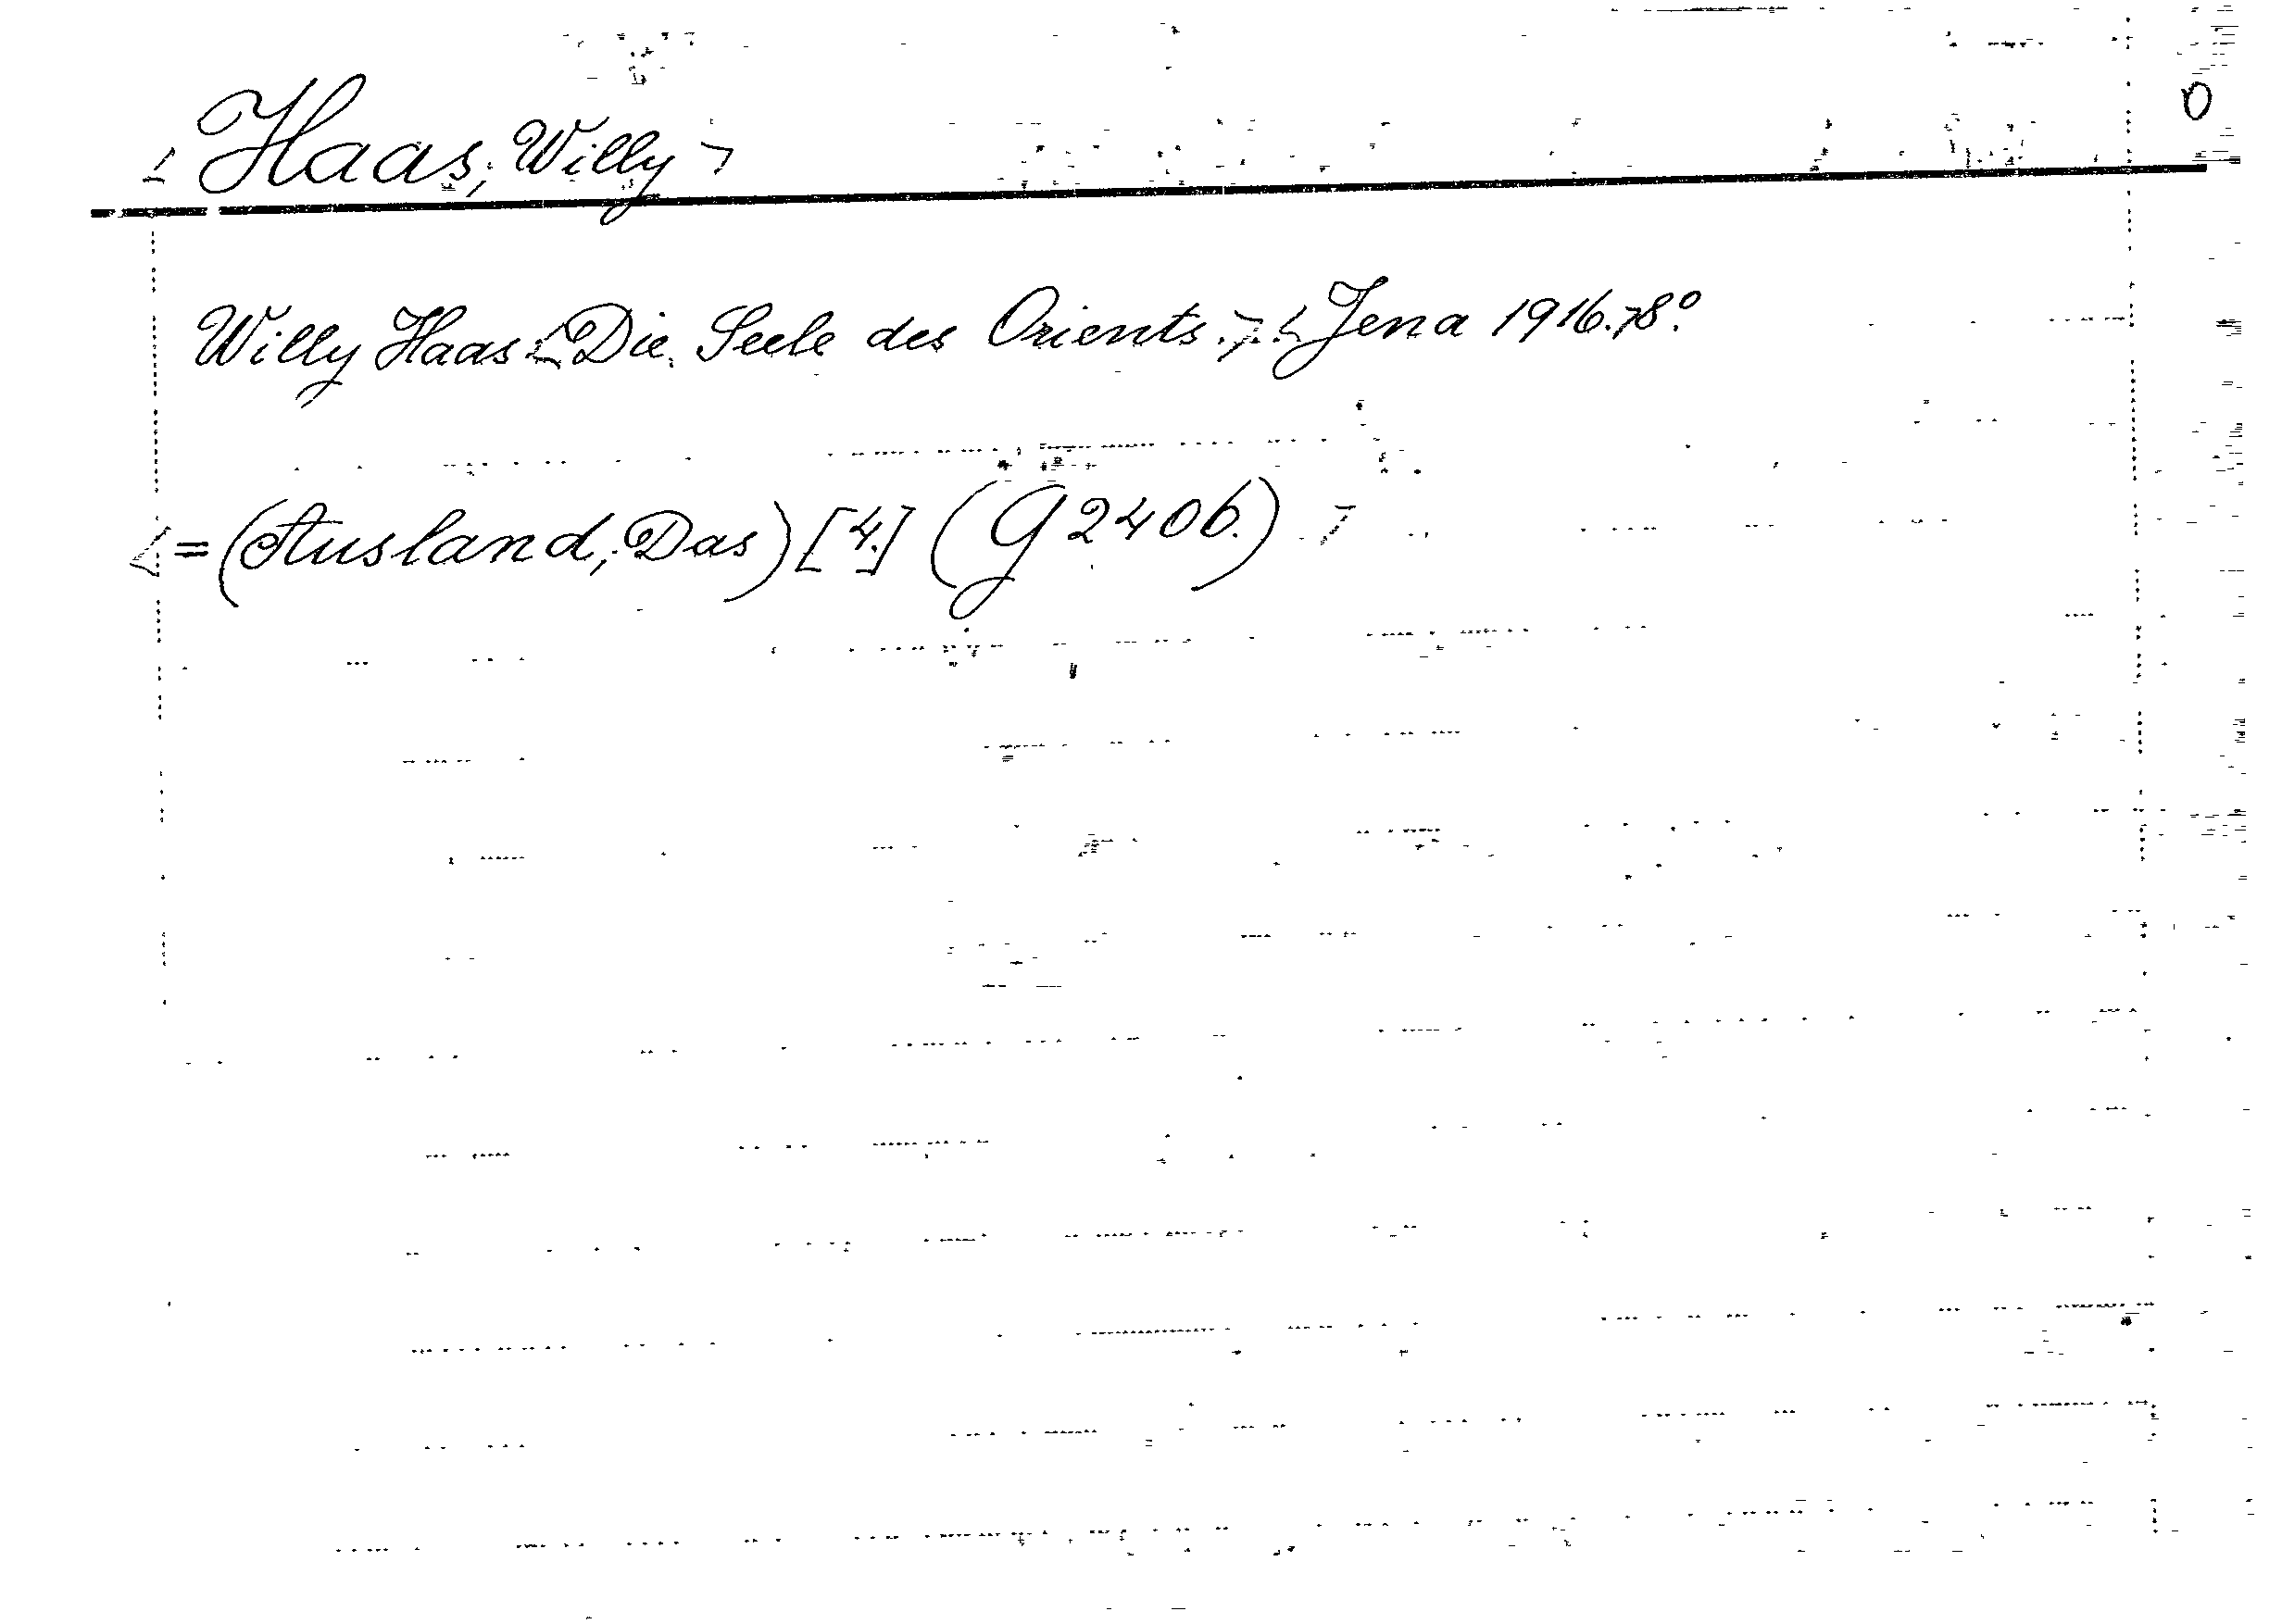 Haas, Willy
O
Willy Haas: Die Seele des Orients. Jena 1916. 8°.
=(Ausland, Das) [4.] (G 2406.)